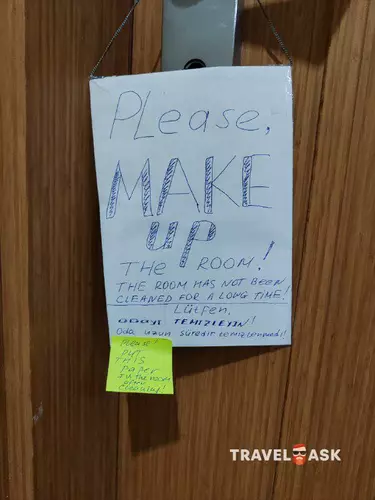 Please,
MAKE
up
THE ROOM!
THE ROOM HAS NOT BEEN
CLEANED FOR A LONG TIME!
Lütfen,
ODAYI TEMIZLEYIN!
Oda uzun süredir temizlenmedi!
Please!
put
THIS
paper
in the room
after
cleaning!
TRAVEL ASK